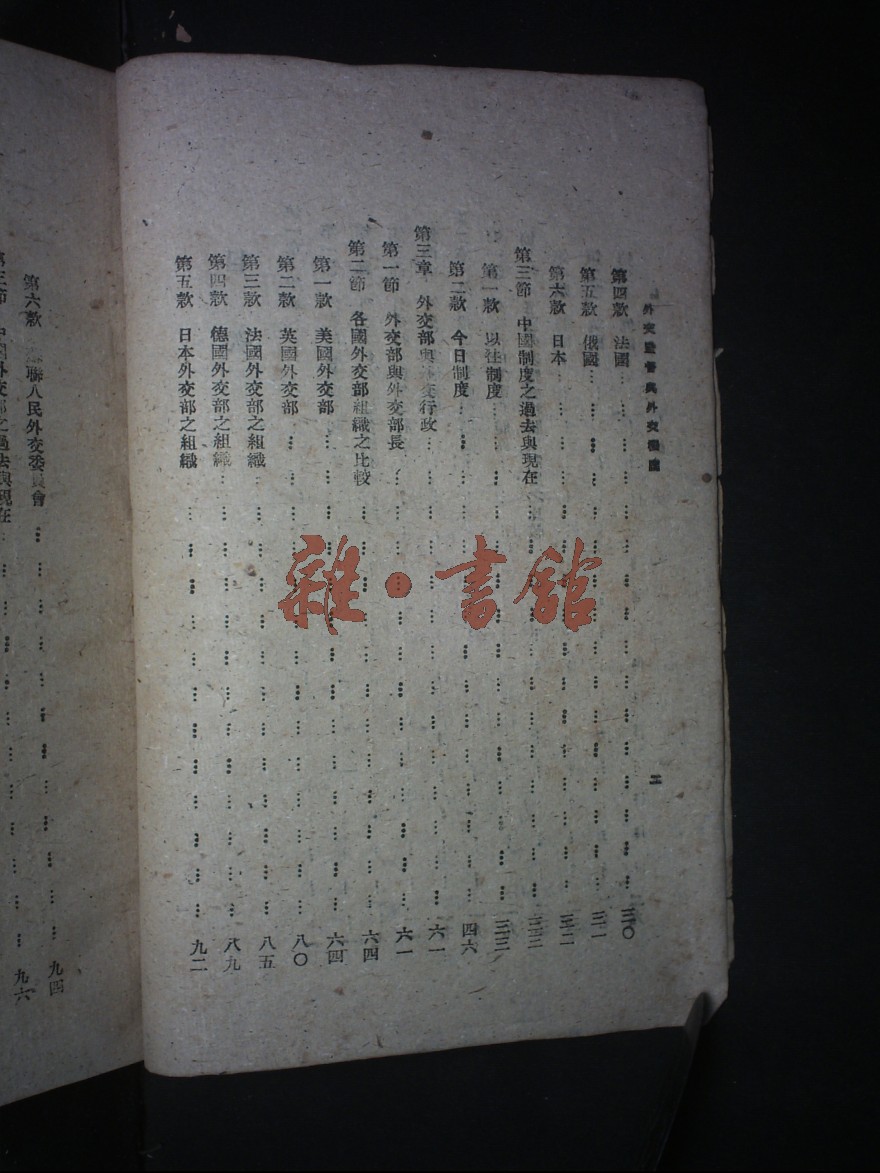 外交監督與外交機關
二
第四款 法國 三〇
第五款 俄國 三一
第六款 日本 三二
第三節 中國制度之過去與現在 三三
第一款 以往制度 三三
第二款 今日制度 四六
第三章 外交部與外交行政 六一
第一節 外交部與外交部長 六一
第二節 各國外交部組織之比較 六四
第一款 美國外交部 六四
第二款 英國外交部 八〇
第三款 法國外交部之組織 八五
第四款 德國外交部之組織 八九
第五款 日本外交部之組織 九二
第六款 聯人民外交委員會 九四
第三節 中國外交部之過去與現在 九六
雜·書館